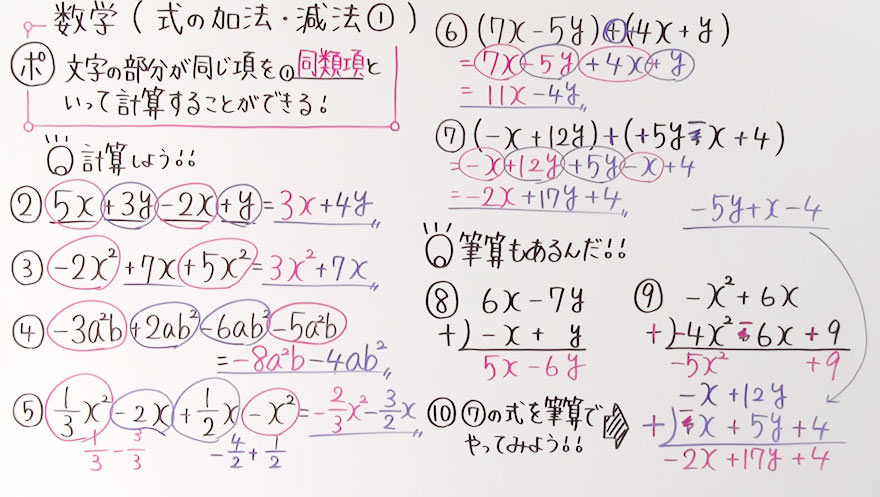 数学（式の加法・減法①）
ポ 文字の部分が同じ項を①同類項と
いって計算することができる!
計算しよう!!
② 5x+3y-2x+y=3x+4y
③ -2x²+7x+5x²=3x²+7x
④ -3a²b+2ab²-6ab²-5a²b
=-8a²b-4ab²
⑤ 1/3x²-2x+1/2x-x²=-2/3x²-3/2x
1/3-3/3 -4/2+1/2
⑥ (7x-5y)+(4x+y)
=7x-5y+4x+y
=11x-4y
⑦ (-x+12y)+(+5y-x+4)
=-x+12y+5y-x+4
=-2x+17y+4
-5y+x-4
筆算もあるんだ!!
⑧ 6x-7y
+)-x+y
5x-6y
⑨ -x²+6x
+)-4x²-6x+9
-5x² +9
⑩ ⑦の式を筆算で
やってみよう!!
-x+12y
+)-x+5y+4
-2x+17y+4